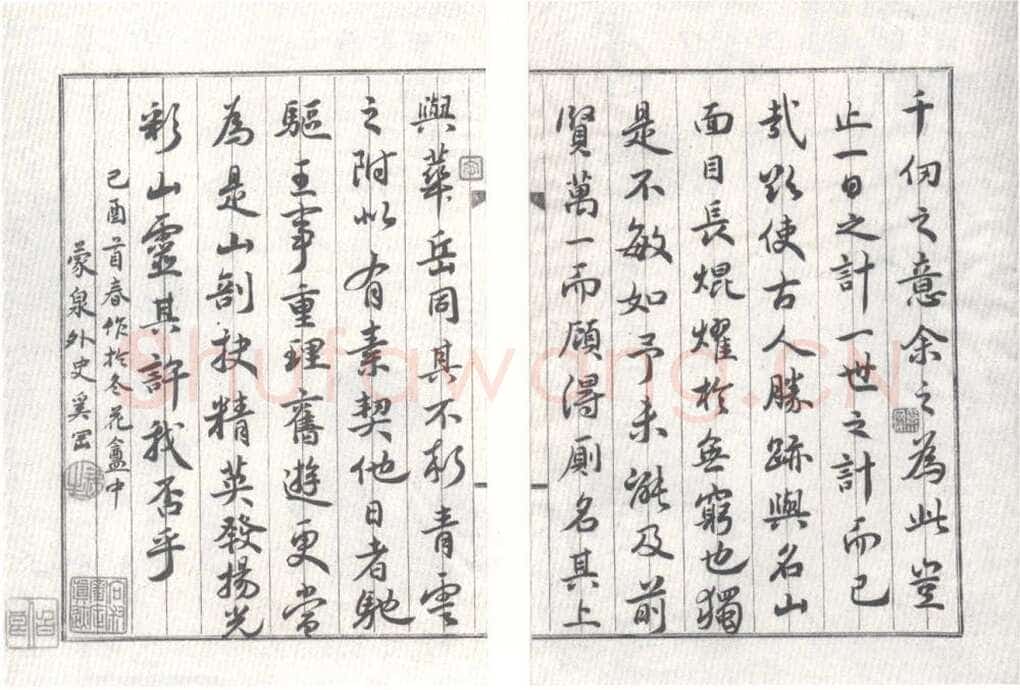 千仞之意余之為此豈
止一日之計一世之計而已
哉欲使古人勝跡與名山
面目長焜耀於無窮也獨
是不敏如予未能及前
賢萬一而顧得厠名其上
與華岳同其不朽青雲
之附似有素契他日者馳
驅王事重理舊遊更當
為是山剖抉精英發揚光
彩山靈其許我否乎
己酉首春作於冬花盦中
蒙泉外史奚岡
Shufawang.CN